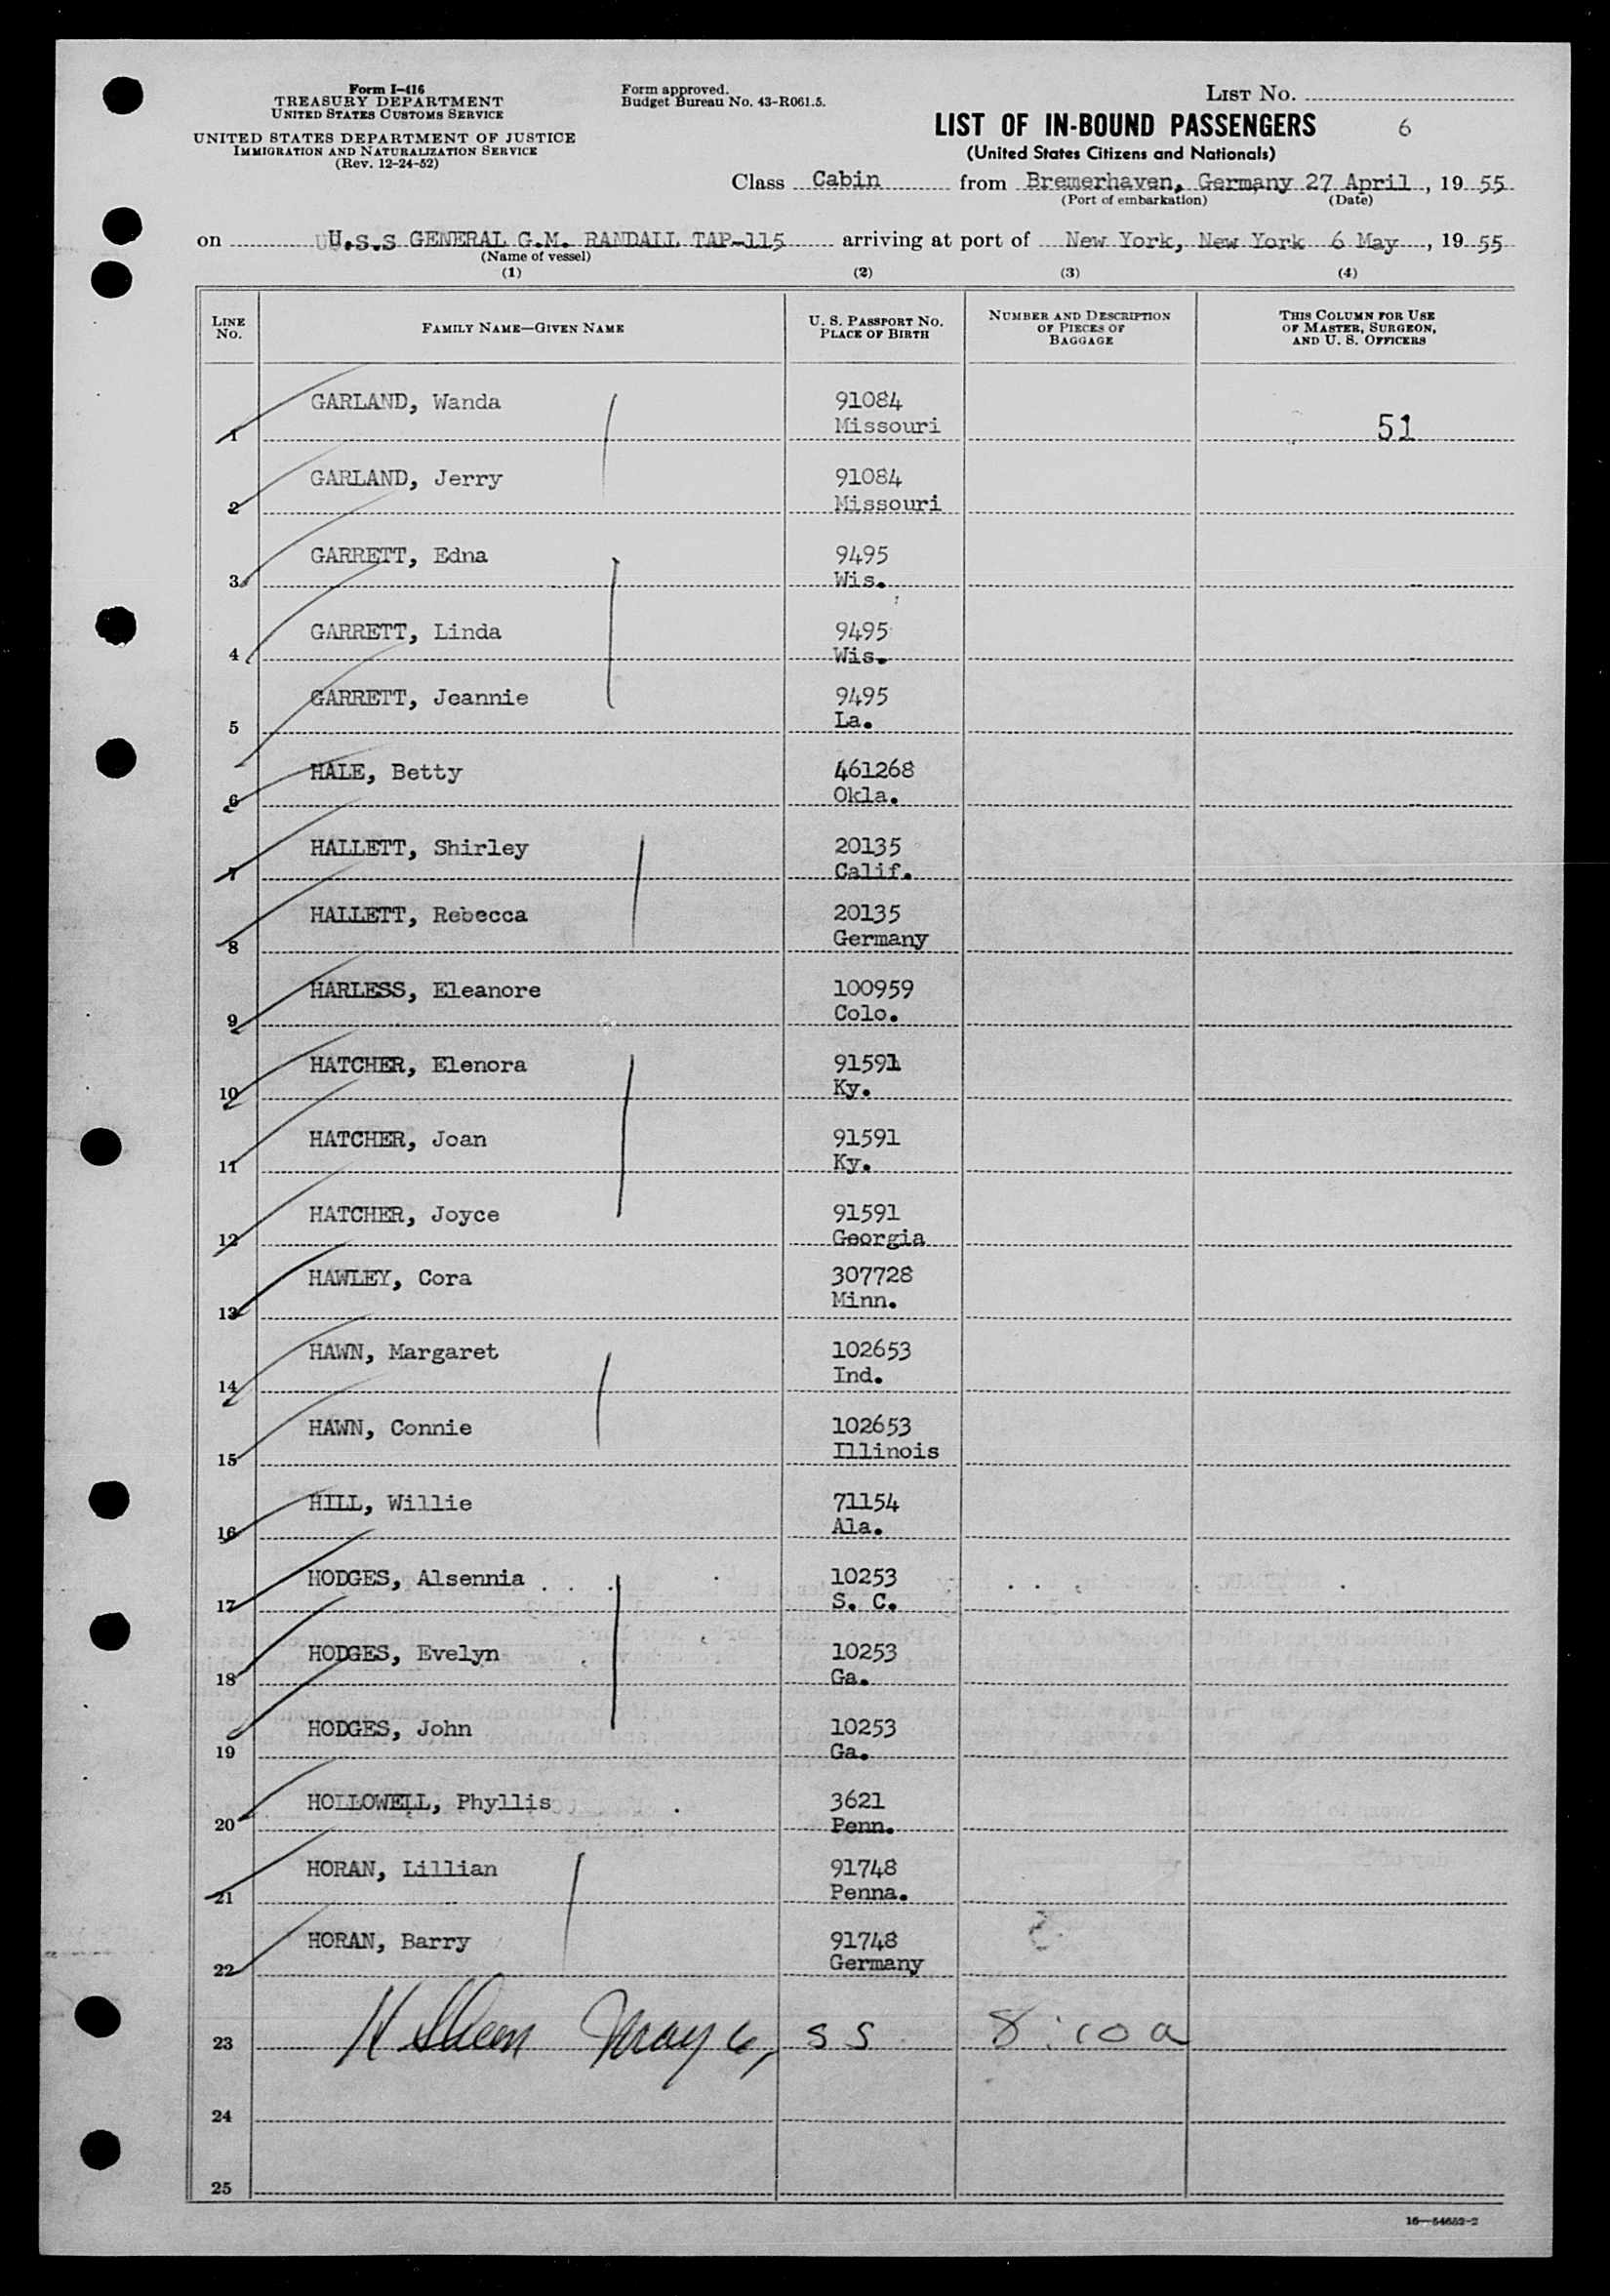 Form I-416
TREASURY DEPARTMENT
UNITED STATES CUSTOMS SERVICE
UNITED STATES DEPARTMENT OF JUSTICE
IMMIGRATION AND NATURALIZATION SERVICE
(Rev. 12-24-52)
Form approved.
Budget Bureau No. 43-R061.5.
LIST NO.
LIST OF IN-BOUND PASSENGERS 6
(United States Citizens and Nationals)
Class Cabin from Bremerhaven, Germany 27 April, 19 55
(Port of embarkation) (Date)
on U.S.S GENERAL G.M. RANDALL TAP-115 arriving at port of New York, New York 6 May, 19 55
(Name of vessel)
(1) (2) (3) (4)
LINE NO. FAMILY NAME—GIVEN NAME U. S. PASSPORT NO. PLACE OF BIRTH NUMBER AND DESCRIPTION OF PIECES OF BAGGAGE THIS COLUMN FOR USE OF MASTER, SURGEON, AND U. S. OFFICERS
GARLAND, Wanda 91084
1 Missouri 51
GARLAND, Jerry 91084
2 Missouri
GARRETT, Edna 9495
3 Wis.
GARRETT, Linda 9495
4 Wis.
GARRETT, Jeannie 9495
5 La.
HALE, Betty 461268
6 Okla.
HALLETT, Shirley 20135
7 Calif.
HALLETT, Rebecca 20135
8 Germany
HARLESS, Eleanore 100959
9 Colo.
HATCHER, Elenora 91591
10 Ky.
HATCHER, Joan 91591
11 Ky.
HATCHER, Joyce 91591
12 Georgia
HAWLEY, Cora 307728
13 Minn.
HAWN, Margaret 102653
14 Ind.
HAWN, Connie 102653
15 Illinois
HILL, Willie 71154
16 Ala.
HODGES, Alsennia 10253
17 S. C.
HODGES, Evelyn 10253
18 Ga.
HODGES, John 10253
19 Ga.
HOLLOWELL, Phyllis 3621
20 Penn.
HORAN, Lillian 91748
21 Penna.
HORAN, Barry 91748
22 Germany
23 May 6, 55 8:10 a
24
25
16—54652-2